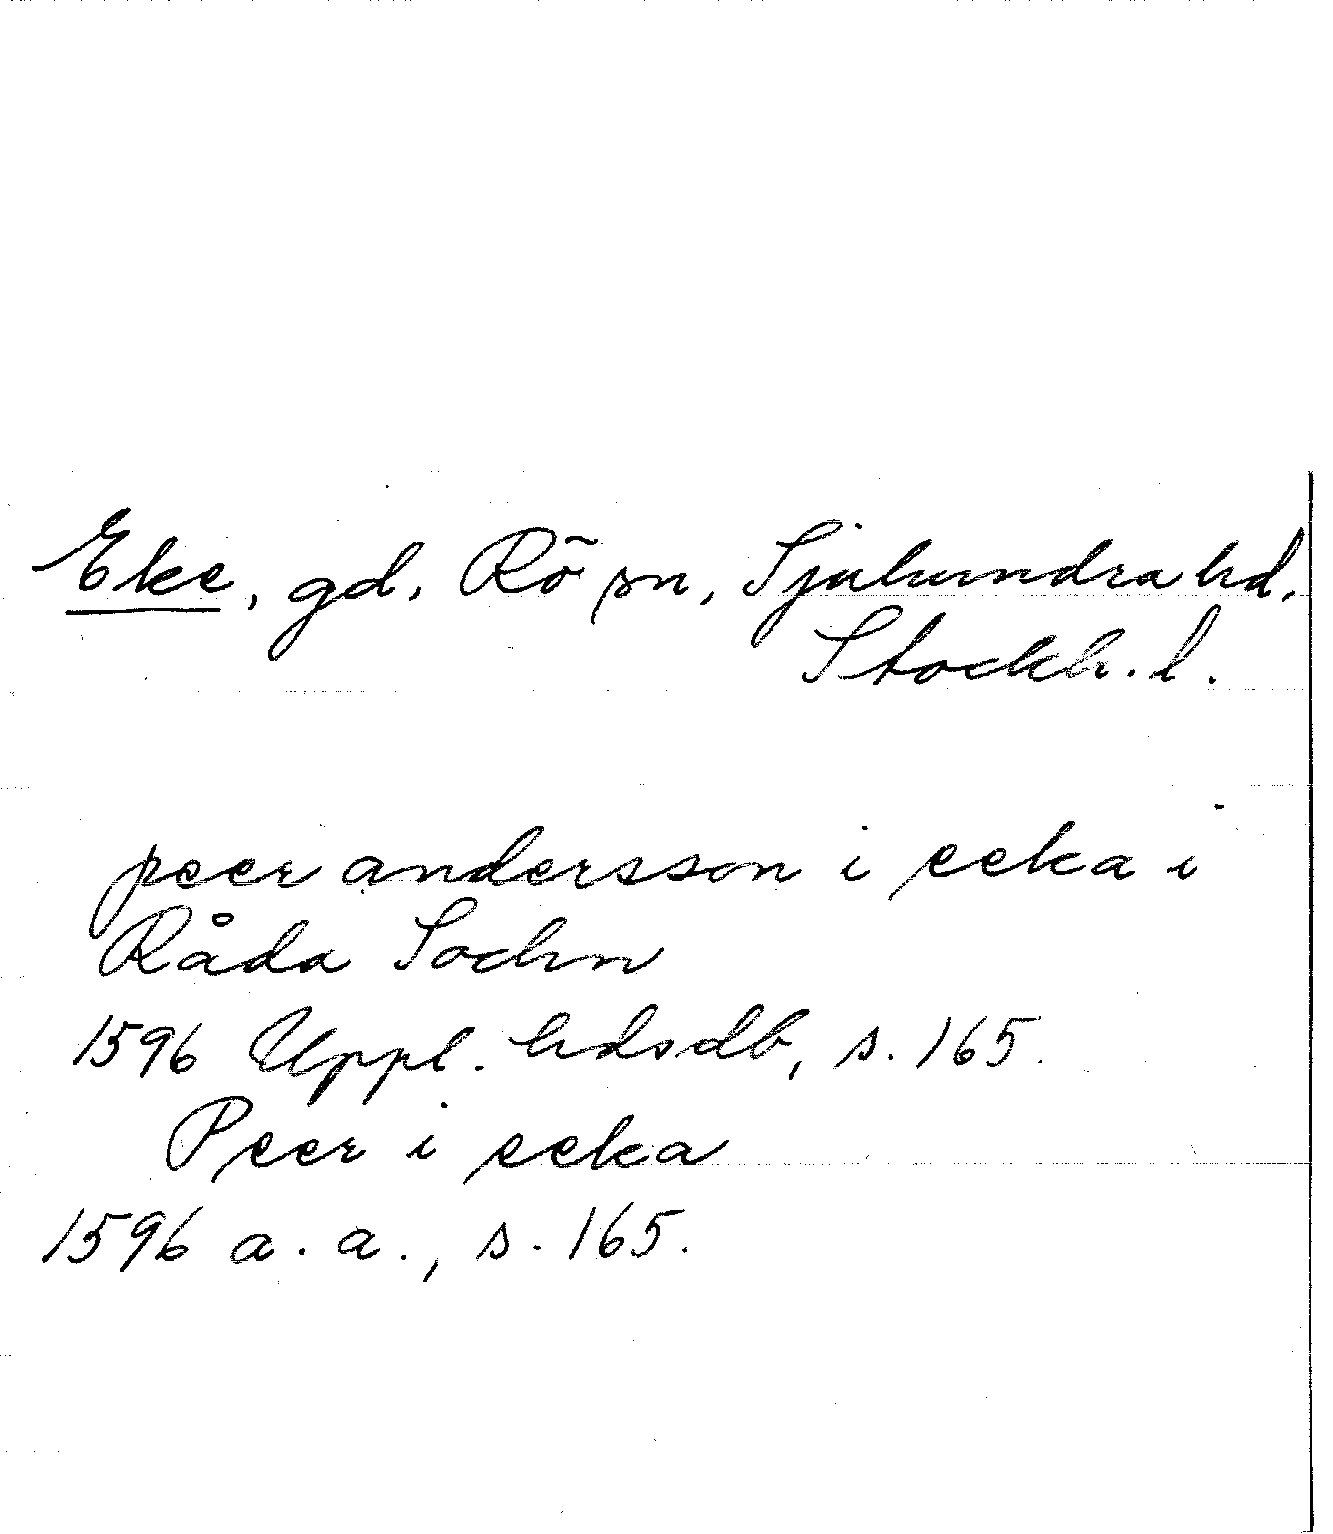 Eke, gd, Rö sn, Sjuhundra hd,
Stockh. l.
peer andersson i eeka i
Råda Sochn
1596 Uppl. hdsdb, s. 165.
Peer i eeka
1596 a. a., s. 165.